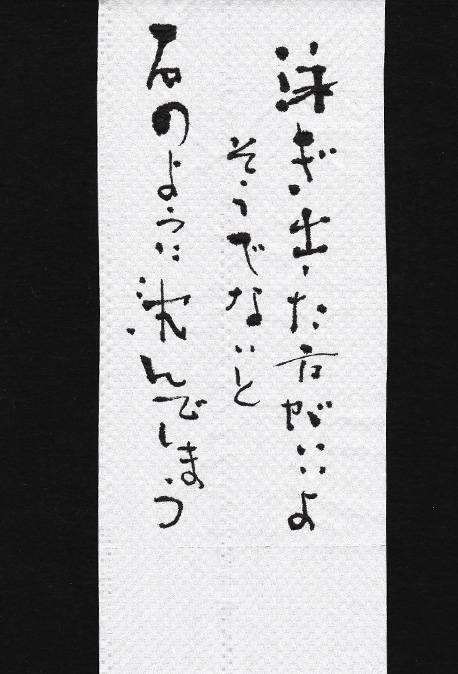 泳ぎ出した方がいいよ
そうでないと
石のように沈んでしまう